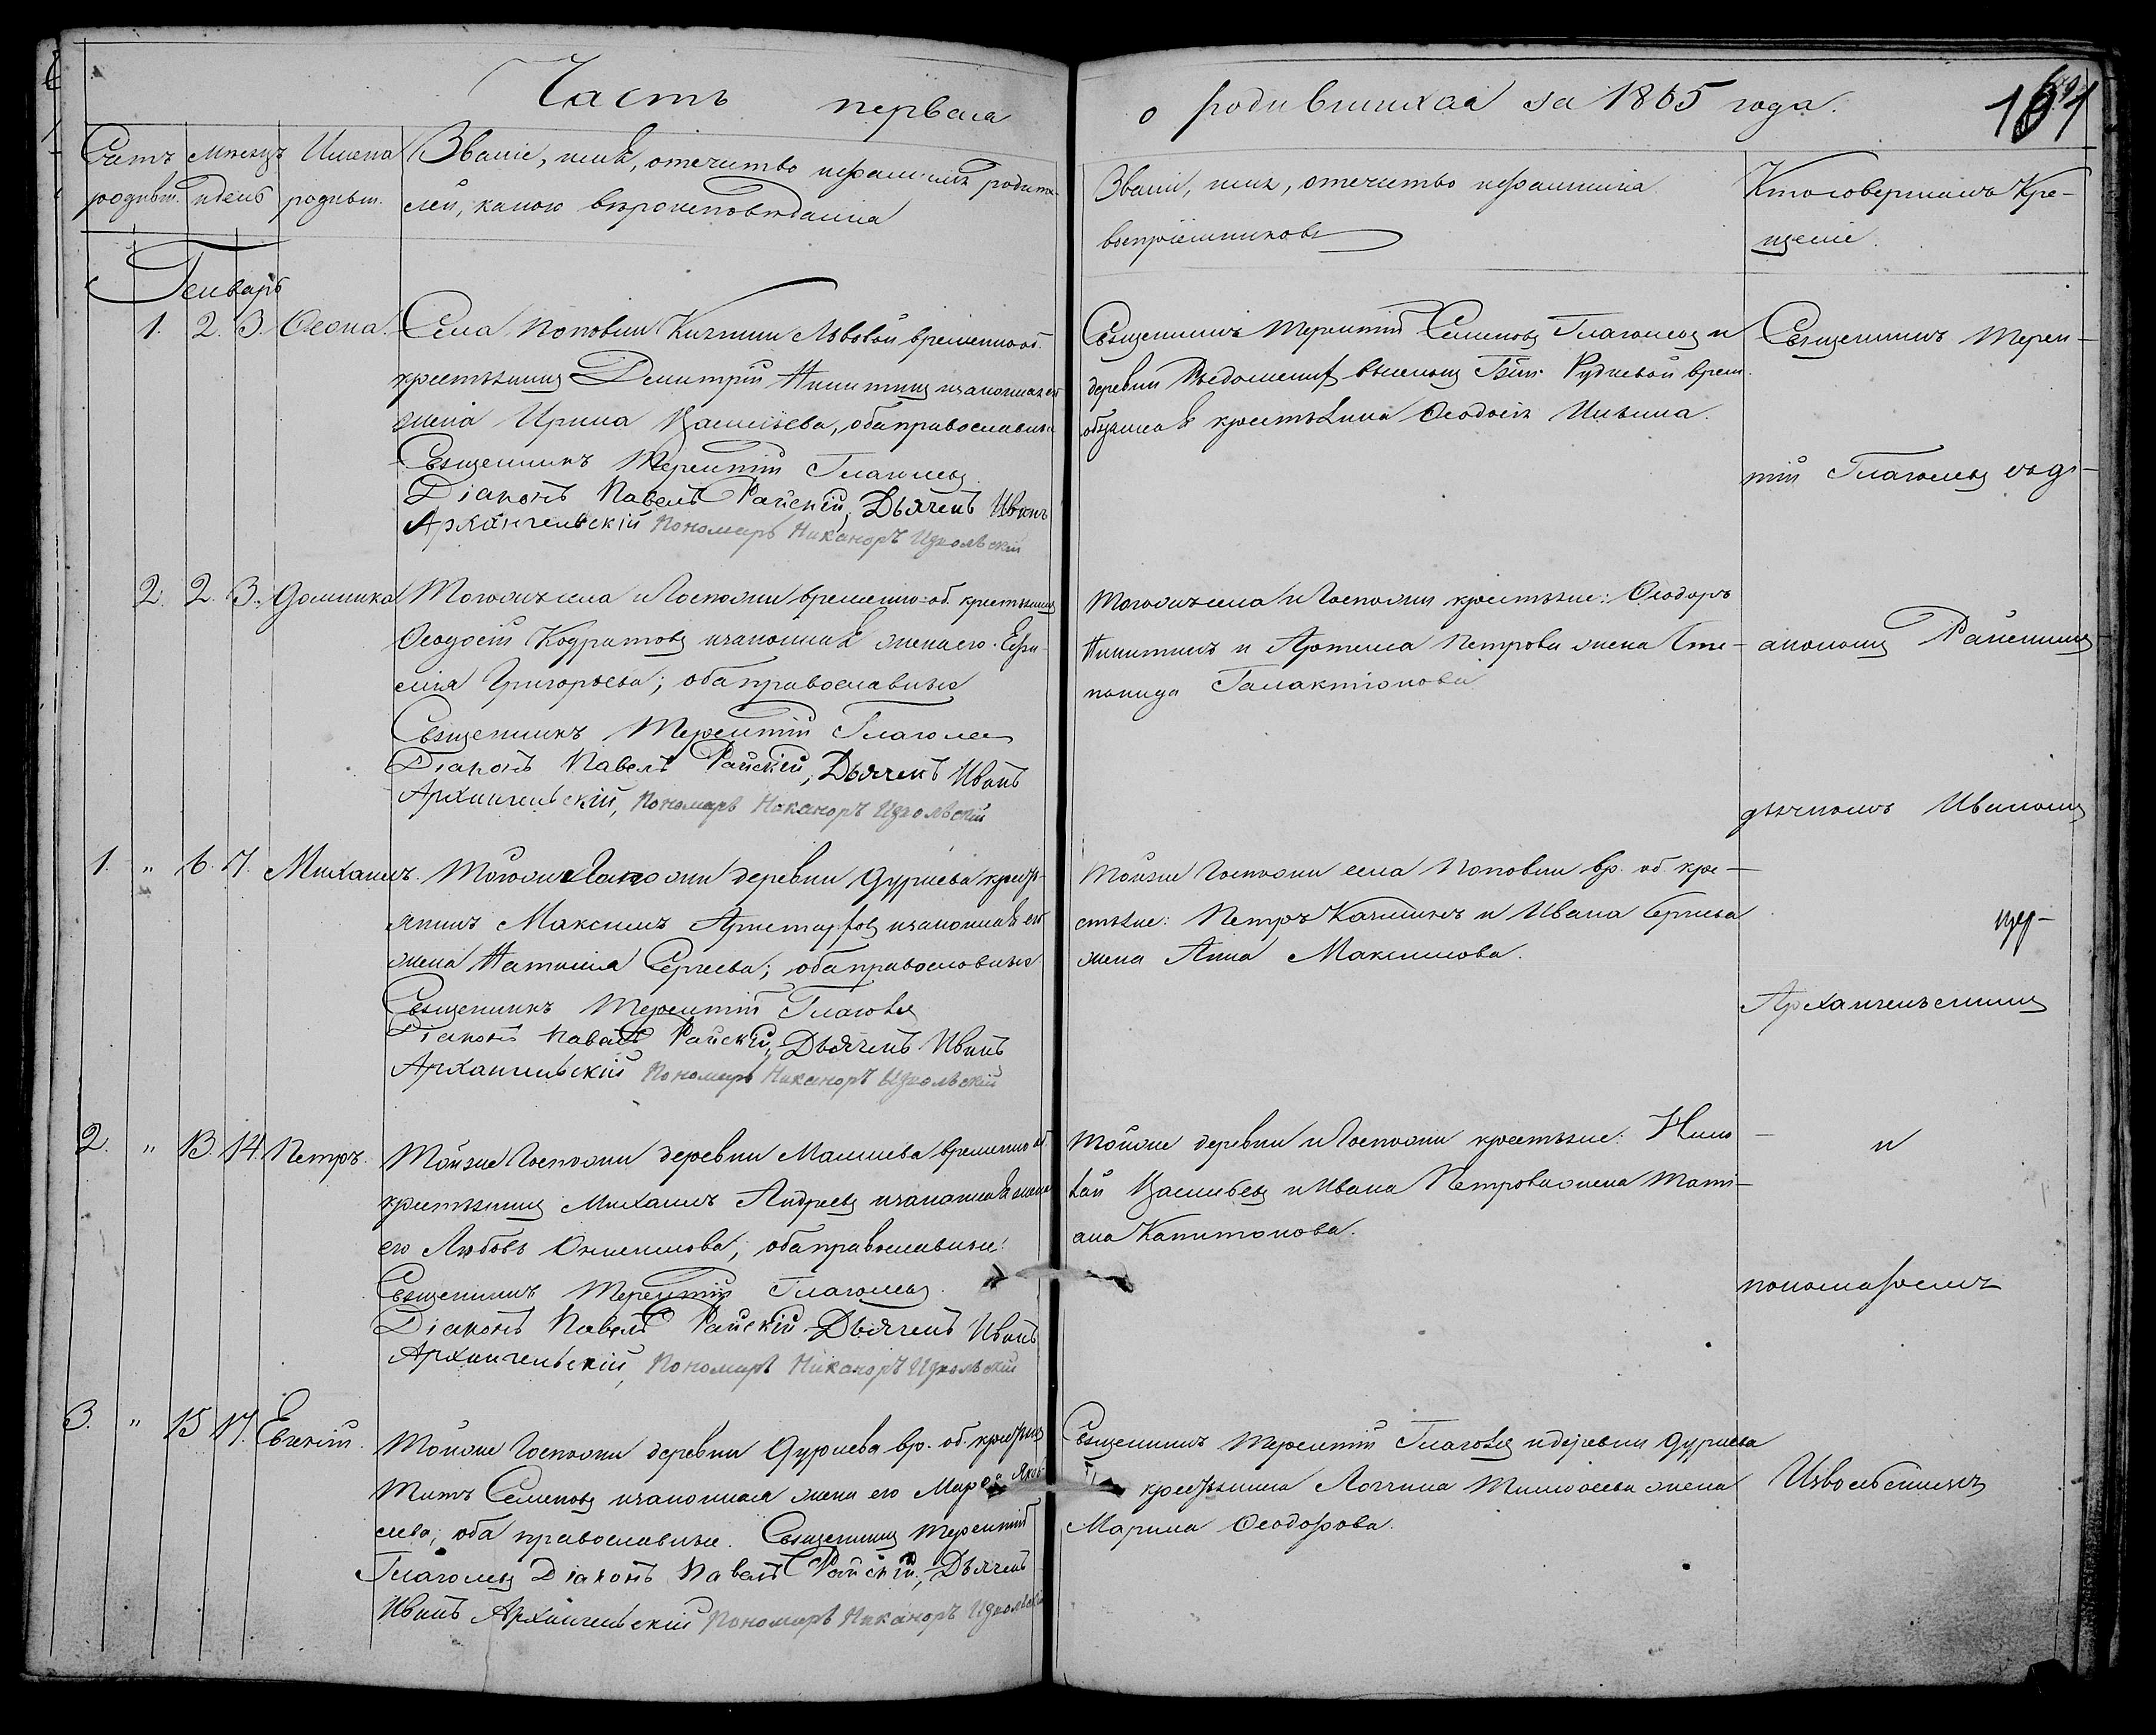 Часть первая
о родившихся за 1865 года.
Счетъ родивш.
Мѣсяцъ и день
Имена родивш.
Званіе, имя, отечество и фамилія родите-
лей, какого вѣроисповѣданія
Званіе, имя, отечество и фамилія
воспріемниковъ
Кто совершалъ Кре-
щеніе.
Генварь
1. 2. 3. Ѳеона.
Села Поповки Княгини Львовой временно об.
крестьянинъ Димитрій Никитинъ и законная его
жена Ирина Васильева, оба православные
Священникъ Терентій Глаголевъ
Діаконъ Павелъ Райскій, Дьячекъ Иванъ
Архангельскій Пономарь Никаноръ Извольскій
Священникъ Терентій Семеновъ Глаголевъ и
деревни Рудневой врем.
обязанная крестьянка Ѳеодосія Ильина.
Священникъ Терен-
тій Глаголевъ съ ді-
2. 2. 3. Домника
Тогоже села и Госпожи временно-об. крестьянинъ
Ѳеодосій Кодратовъ и законная жена его Ефи-
мія Григорьева; оба православные
Священникъ Терентій Глаголевъ
Діаконъ Павелъ Райскій, Дьячекъ Иванъ
Архангельскій, Пономарь Никаноръ Извольскій
Тогоже села и Госпожи крестьяне: Ѳеодоръ
Никитинъ и Артема Петрова жена Сте-
панида Галактіонова
акономъ Райскимъ
дьячкомъ Иваномъ
1. " 6. 7. Михаилъ.
Тойже Госпожи деревни Дурнева кресть-
янинъ Максимъ Аристарховъ и законная его
жена Наталія Сергеева; оба православные
Священникъ Терентій Глаголевъ
Діаконъ Павелъ Райскій, Дьячекъ Иванъ
Архангельскій Пономарь Никаноръ Извольскій
Тойже Госпожи села Поповки вр. об. кре-
стьяне: Петръ и Ивана Сергеева
жена Анна Максимова.
Архангельскимъ
2. " 13. 14. Петръ.
Тойже Госпожи деревни Малиева временно об.
крестьянинъ Михаилъ Андреевъ и законная жена
его Любовь Онисимова; оба православные.
Священникъ Терентій Глаголевъ
Діаконъ Павелъ Райскій Дьячекъ Иванъ
Архангельскій, Пономарь Никаноръ Извольскій
Тойже деревни и Госпожи крестьяне: Нико-
лай Васильевъ и Ивана Петрова жена Тати-
ана Капитонова.
и
пономаремъ
3. " 15 17. Евгеній.
Тойже Госпожи деревни Дурнева вр. об. крестьянинъ
Титъ Семеновъ и законная жена его Марѳа Яков-
лева; оба православные. Священникъ Терентій
Глаголевъ Діаконъ Павелъ Райскій, Дьячекъ
Иванъ Архангельскій Пономарь Никаноръ Извольскій
Священникъ Терентій Глаголевъ и деревни Дурнева
крестьянина Логгина Тимоѳеева жена
Марина Ѳеодорова.
Извольскимъ